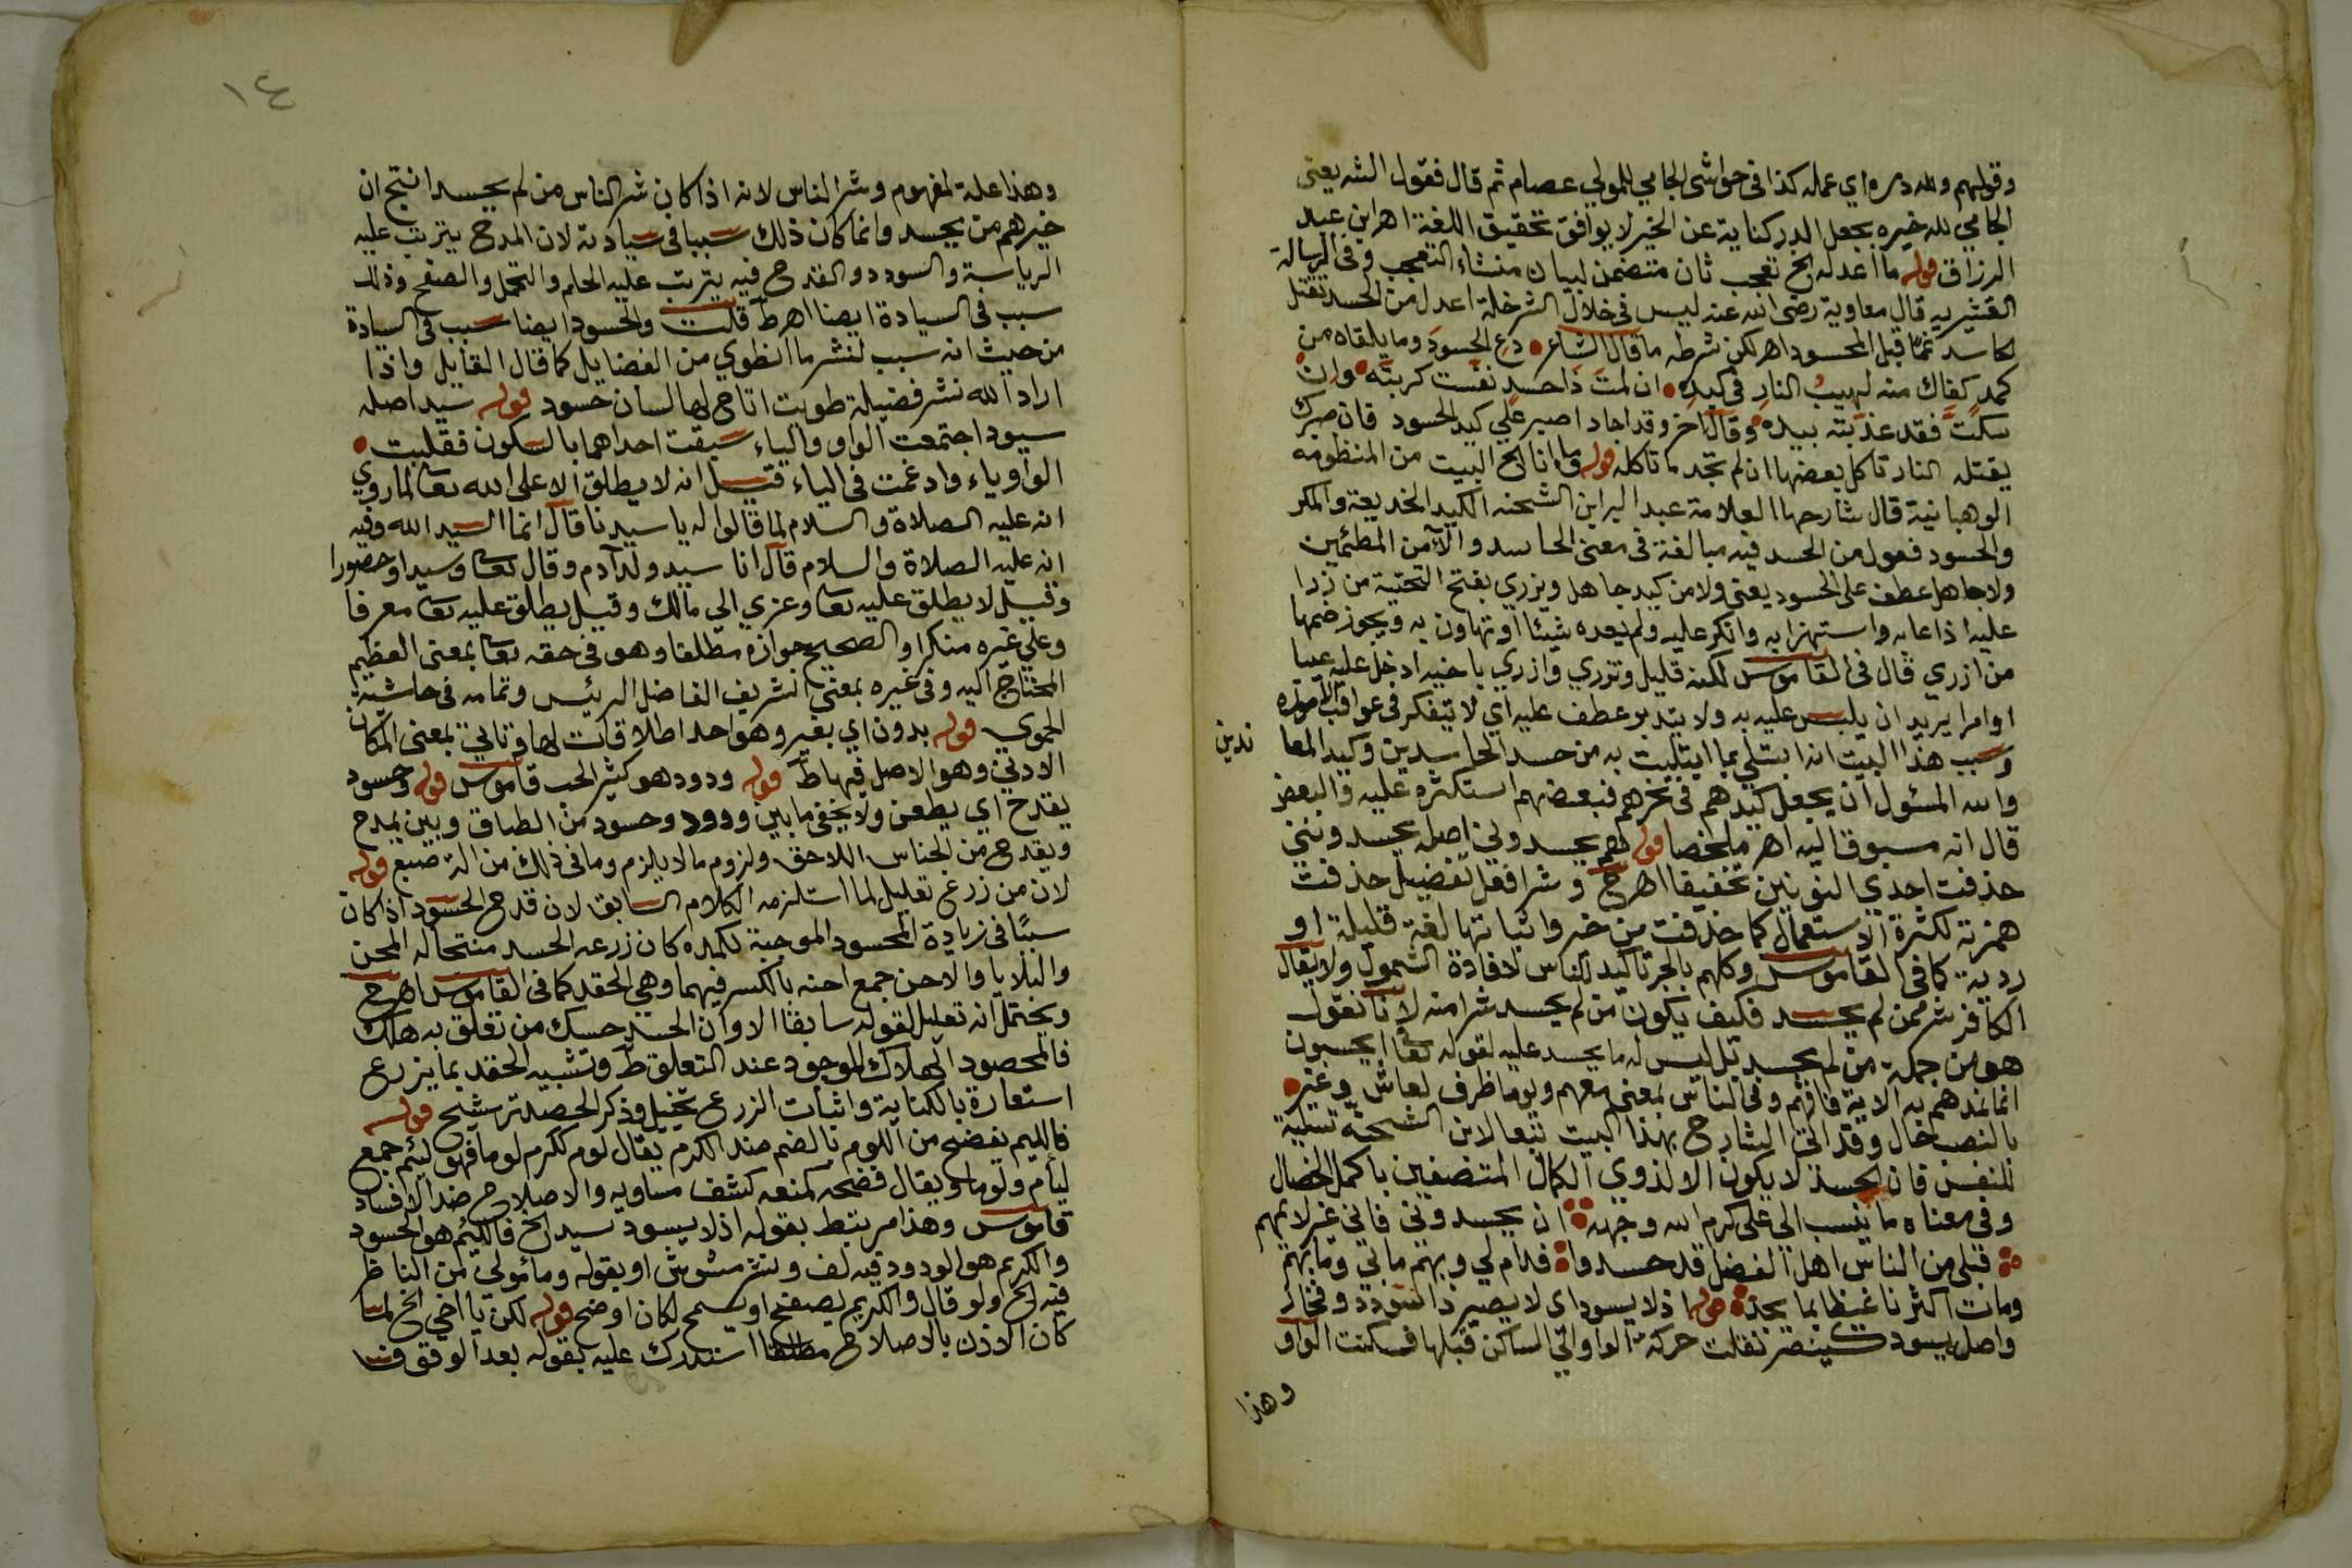 وقولهم ولله دره اي عمله كذا في حواشي الجامي للمولي عصام ثم قال فقول الش يعني
الجامي لله خيره بجعل الدر كناية عن الخير لا يوافق تحقيق اللغة اهر ابن عبد
الرزاق قوله ما اعدله الخ تعجب ثان متضمن لبيان منشاء التعجب وفي الرسالة
القشيريه قال معاوية رضي الله عنه ليس في خلال الشر خلة اعدل من الحسد تقتل
الحاسد غمّا قبل المحسود اهر لكن شرطه ما قال الشاعر دع الحسودَ وما يلقاه من
كمدٍ كفاك منه لهيبُ النارِ في كبده ان لمتَ ذا حسدٍ نفّست كربتَه وان
سكتَّ فقد عذّبته بيده وقال اخر وقد اجاد اصبر علي كيد الحسود فان صبرك
يقتله النار تاكل بعضها ان لم تجد ما تاكله قوله وما انا الخ البيت من المنظومه
الوهبانية قال شارحها العلامة عبد البر ابن الشحنه الكيد الخديعة والمكر
والحسود فعول من الحسد فيه مبالغة في معني الحاسد والآمن المطئمين
ولا جاهل عطف على الحسود يعني ولا من كيد جاهل ويزري بفتح التحتية من زرا
عليه اذا عابه واستهزا به وانكر عليه ولم يعده شيئا او تهاون به ويجوز ضمها
من ازري قال في القاموس لكنه قليل وتزري وازري باخيه ادخل عليه عيبا
او امرا يريد ان يلبس عليه به ولا يتدبر عطف عليه اي لا يتفكر في عواقب الامور
وسبب هذا البيت انه ابتلي بما ابتليت به من حسد الحاسدين وكيد المعا
ندين
والله المسئول ان يجعل كيدهم في نحرهم فبعضهم استكثره عليه والبعض
قال انه مسبوق اليه اهر ملخصا قوله هم يحسدوني اصله يحسدونني
حذفت احدي النونين تخفيفا اهر ح وشر افعل تفضيل حذفت
همزته لكثرة الاستعمال كما حذفت من خير واثباتها لغة قليلة او
ردية كما في القاموس وكلهم بالجر تاكيد للناس لافادة الشمول ولا يقال
الكافر شر ممن لم يحسد فكيف يكون من لم يحسد شرا منه لانا نقول
هو من جملة من لم يحسد بل ليس له ما يحسد عليه لقوله تعا ايحسبون
انما نمدهم به الاية فافهم وفي الناس بمعنى معهم ويوما ظرف لعاش وغير
بالنصب حال وقد اتي الشارح بهذا البيت تبعا لابن الشحنة تسلية
للنفس فان الحسد لا يكون الا لذوي الكمال المتصفين باكمل الخصال
وفي معناه ما ينسب الي علي كرم الله وجهه ان يحسدوني فاني غير لائمهم
قبلي من الناس اهل الفضل قد حسدوا فدام لي وبهم ما بي وما بهم
ومات اكثرنا غيظا بما يجد قوله اذ لا يسود اي لا يصير ذا سودد وفخار
واصل يسود كينصر نقلت حركة الواو الي الساكن قبلها فسكنت الواو
وهذا
١٤
وهذا علة لمفهوم وشر الناس لانه اذا كان شر الناس من لم يحسد انتج ان
خيرهم من يحسد وانما كان ذلك سببا في سيادته لان المدح يترتب عليه
الرياسة والسودد والقدح فيه يترتب عليه الحلم والتحمل والصفح وذلك
سبب في السيادة ايضا اهر ط قلت والحسود ايضا سبب في السيادة
من حيث انه سبب لنشر ما انطوي من الفضايل كما قال القايل واذا
اراد الله نشر فضيلة طويت اتاح لها لسان حسود قوله سيد اصله
سيود اجتمعت الواو والياء سبقت احداهما بالسكون فقلبت
الواو ياء وادغمت في الياء قيل انه لا يطلق الا على الله تعا لما روي
انه عليه الصلاة والسلام لما قالوا له يا سيدنا قال انما السيد الله وفيه
انه عليه الصلاة والسلام قال انا سيد ولد آدم وقال تعا وسيدا وحصورا
وقيل لا يطلق عليه تعا وعزي الي مالك وقيل يطلق عليه تعا معرفا
وعلي غيره منكرا والصحيح جوازه مطلقا وهو في حقه تعا بمعنى العظيم
المحتاج اليه وفي غيره بمعني الشريف الفاضل الرئيس وتمامه في حاشية
الحموي قوله بدون اي بغير وهو احد اطلاقات لها وتاتي بمعنى المكان
الادني وهو الاصل فيها ط قوله ودود هو كثير الحب قاموس قوله وحسود
يقدح اي يطعن ولا يخفي ما بين ودود وحسود من الطباق وبين يمدح
ويقدح من الجناس اللاحق ولزوم ما لا يلزم وما في ذلك من الة صبع قوله
لان من زرع تعليل لما استلزمه الكلام السابق لان قدح الحسود اذا كان
سببًا في زيادة المحسود الموجبة لكمده كان زرعه الحسد منتجا له المحن
والبلايا والاحن جمع احنه بالكسر فيهما وهي الحقد كما في القاموس اهر ح
ويحتمل انه تعليل لقوله سابقا الا وان الحسد حسك من تعلق به هلك
فالمحصود الهلاك الموجود عند التعلق ط وتشبيه الحقد بما يزرع
استعارة بالكناية واثبات الزرع تخييل وذكر الحصد ترشيح قوله
فالليم يفضح من اللوم بالضم ضد الكرم يقال لوم ككرم لوما فهو لئيم جمع
ليام ولوما ويقال فضحه كمنعه كشف مساويه والاصلاح ضد الافساد
قاموس وهذا مرتبط بقوله اذ لا يسود سيد الخ فاللئيم هو الحسود
والكريم هو الودود ففيه لف ونشر مشوش او بقوله ومأمولي من الناظر
فيه الخ ولو قال والكريم يصفح او يسمح لكان اوضح قوله لكن يا اخي الخ لما
كان الاذن بالاصلاح مطلقا استدرك عليه بقوله بعد الوقوف